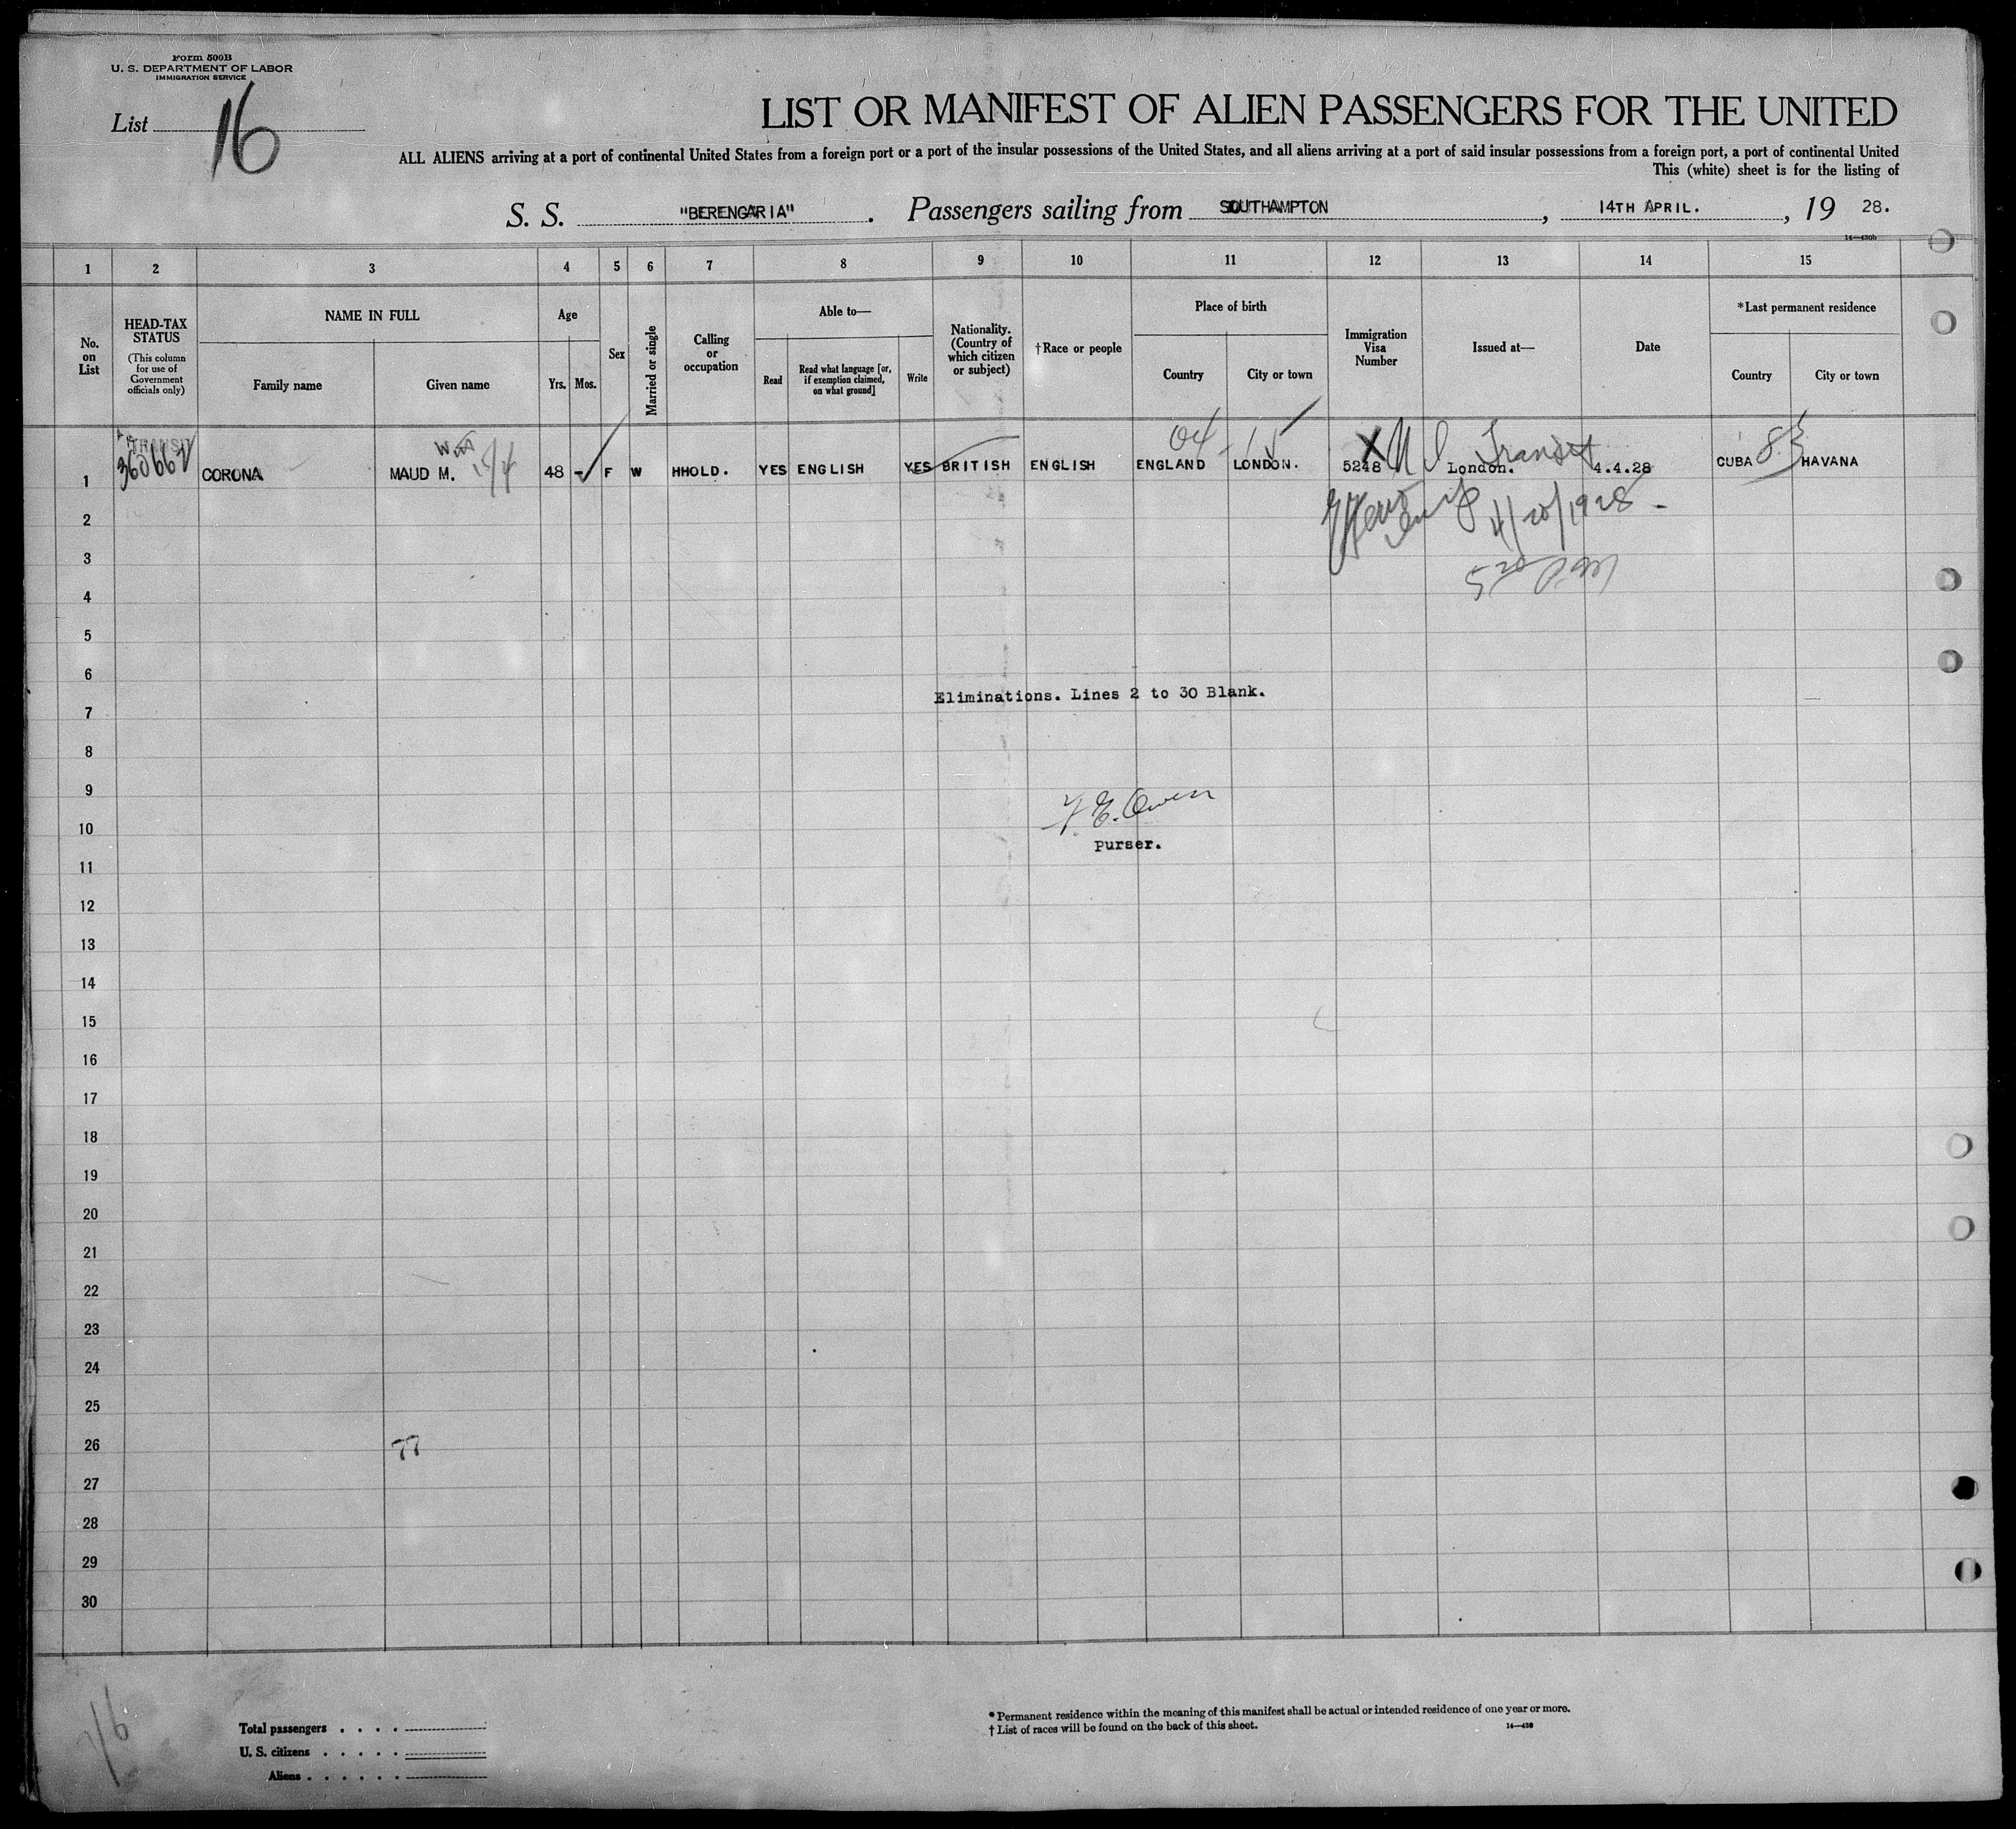 Form 500B
U. S. DEPARTMENT OF LABOR
IMMIGRATION SERVICE
List 16
LIST OR MANIFEST OF ALIEN PASSENGERS FOR THE UNITED
ALL ALIENS arriving at a port of continental United States from a foreign port or a port of the insular possessions of the United States, and all aliens arriving at a port of said insular possessions from a foreign port, a port of continental United
This (white) sheet is for the listing of
S. S. "BERENGARIA". Passengers sailing from SOUTHAMPTON, 14TH APRIL., 19 28.
14—430b
1 2 3 4 5 6 7 8 9 10 11 12 13 14 15
No. on List
HEAD-TAX STATUS
(This column for use of Government officials only)
NAME IN FULL
Family name
Given name
Age
Yrs.
Mos.
Sex
Married or single
Calling or occupation
Able to—
Read
Read what language [or, if exemption claimed, on what ground]
Write
Nationality. (Country of which citizen or subject)
†Race or people
Place of birth
Country
City or town
Immigration Visa Number
Issued at—
Date
*Last permanent residence
Country
City or town
TRANSIT
04
Transit
83
1 CORONA MAUD M. 48 - F W HHOLD. YES ENGLISH YES BRITISH ENGLISH ENGLAND LONDON. 5248 London. 4.4.28 CUBA HAVANA
4/20/1928
2
3
4
5
6
Eliminations. Lines 2 to 30 Blank.
7
8
9
F. E. Owen
10
Purser.
11
12
13
14
15
16
17
18
19
20
21
22
23
24
25
26 77
27
28
29
30
Total passengers . . . .
U. S. citizens . . . . .
Aliens . . . . . .
* Permanent residence within the meaning of this manifest shall be actual or intended residence of one year or more.
† List of races will be found on the back of this sheet.
14—430